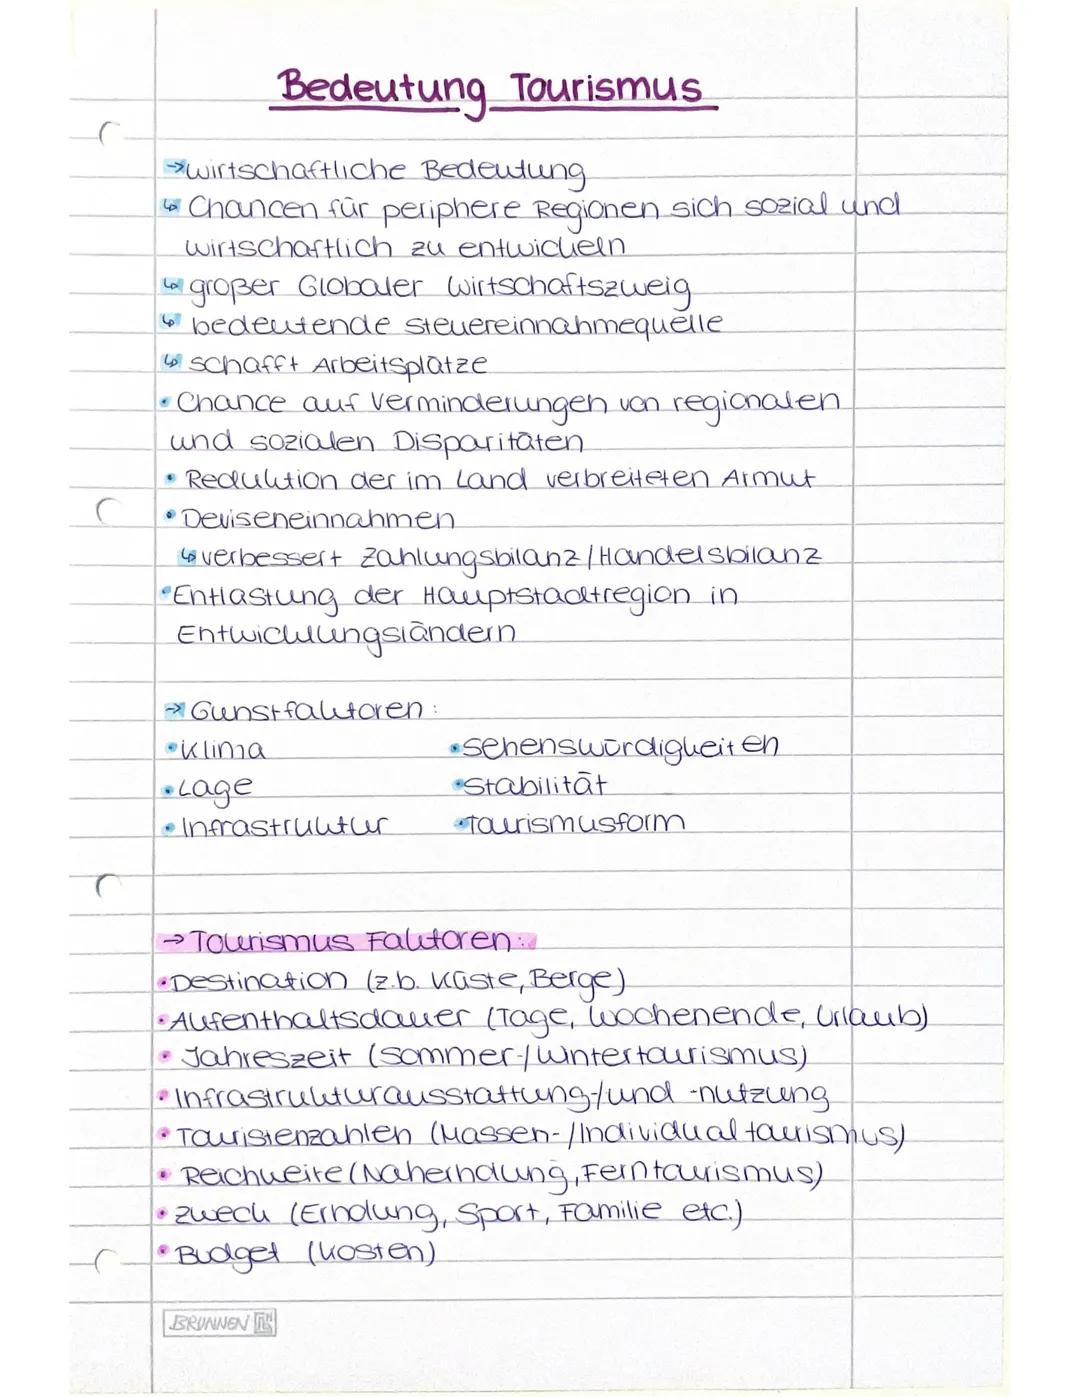 Bedeutung Tourismus
→ wirtschaftliche Bedeutung
↳ Chancen für periphere Regionen sich sozial und
wirtschaftlich zu entwickeln
↳ großer Globaler Wirtschaftszweig
↳ bedeutende steuereinnahmequelle
↳ schafft Arbeitsplätze
• Chance auf Verminderungen von regionalen
und sozialen Disparitäten
• Reduktion der im Land verbreiteten Armut
• Deviseneinnahmen
↳ verbessert Zahlungsbilanz/Handelsbilanz
• Entlastung der Hauptstadtregion in
Entwicklungsländern
→ Gunstfaktoren:
• Klima • Sehenswürdigkeiten
• Lage • Stabilität
• Infrastruktur • Tourismusform
→ Tourismus Faktoren:
• Destination (z.b. Küste, Berge)
• Aufenthaltsdauer (Tage, Wochenende, Urlaub)
• Jahreszeit (Sommer-/Wintertourismus)
• Infrastrukturausstattung-/und -nutzung
• Touristenzahlen (Massen-/Individualtourismus)
• Reichweite (Naherholung, Ferntourismus)
• Zweck (Erholung, Sport, Familie etc.)
• Budget (Kosten)
BRUNNEN